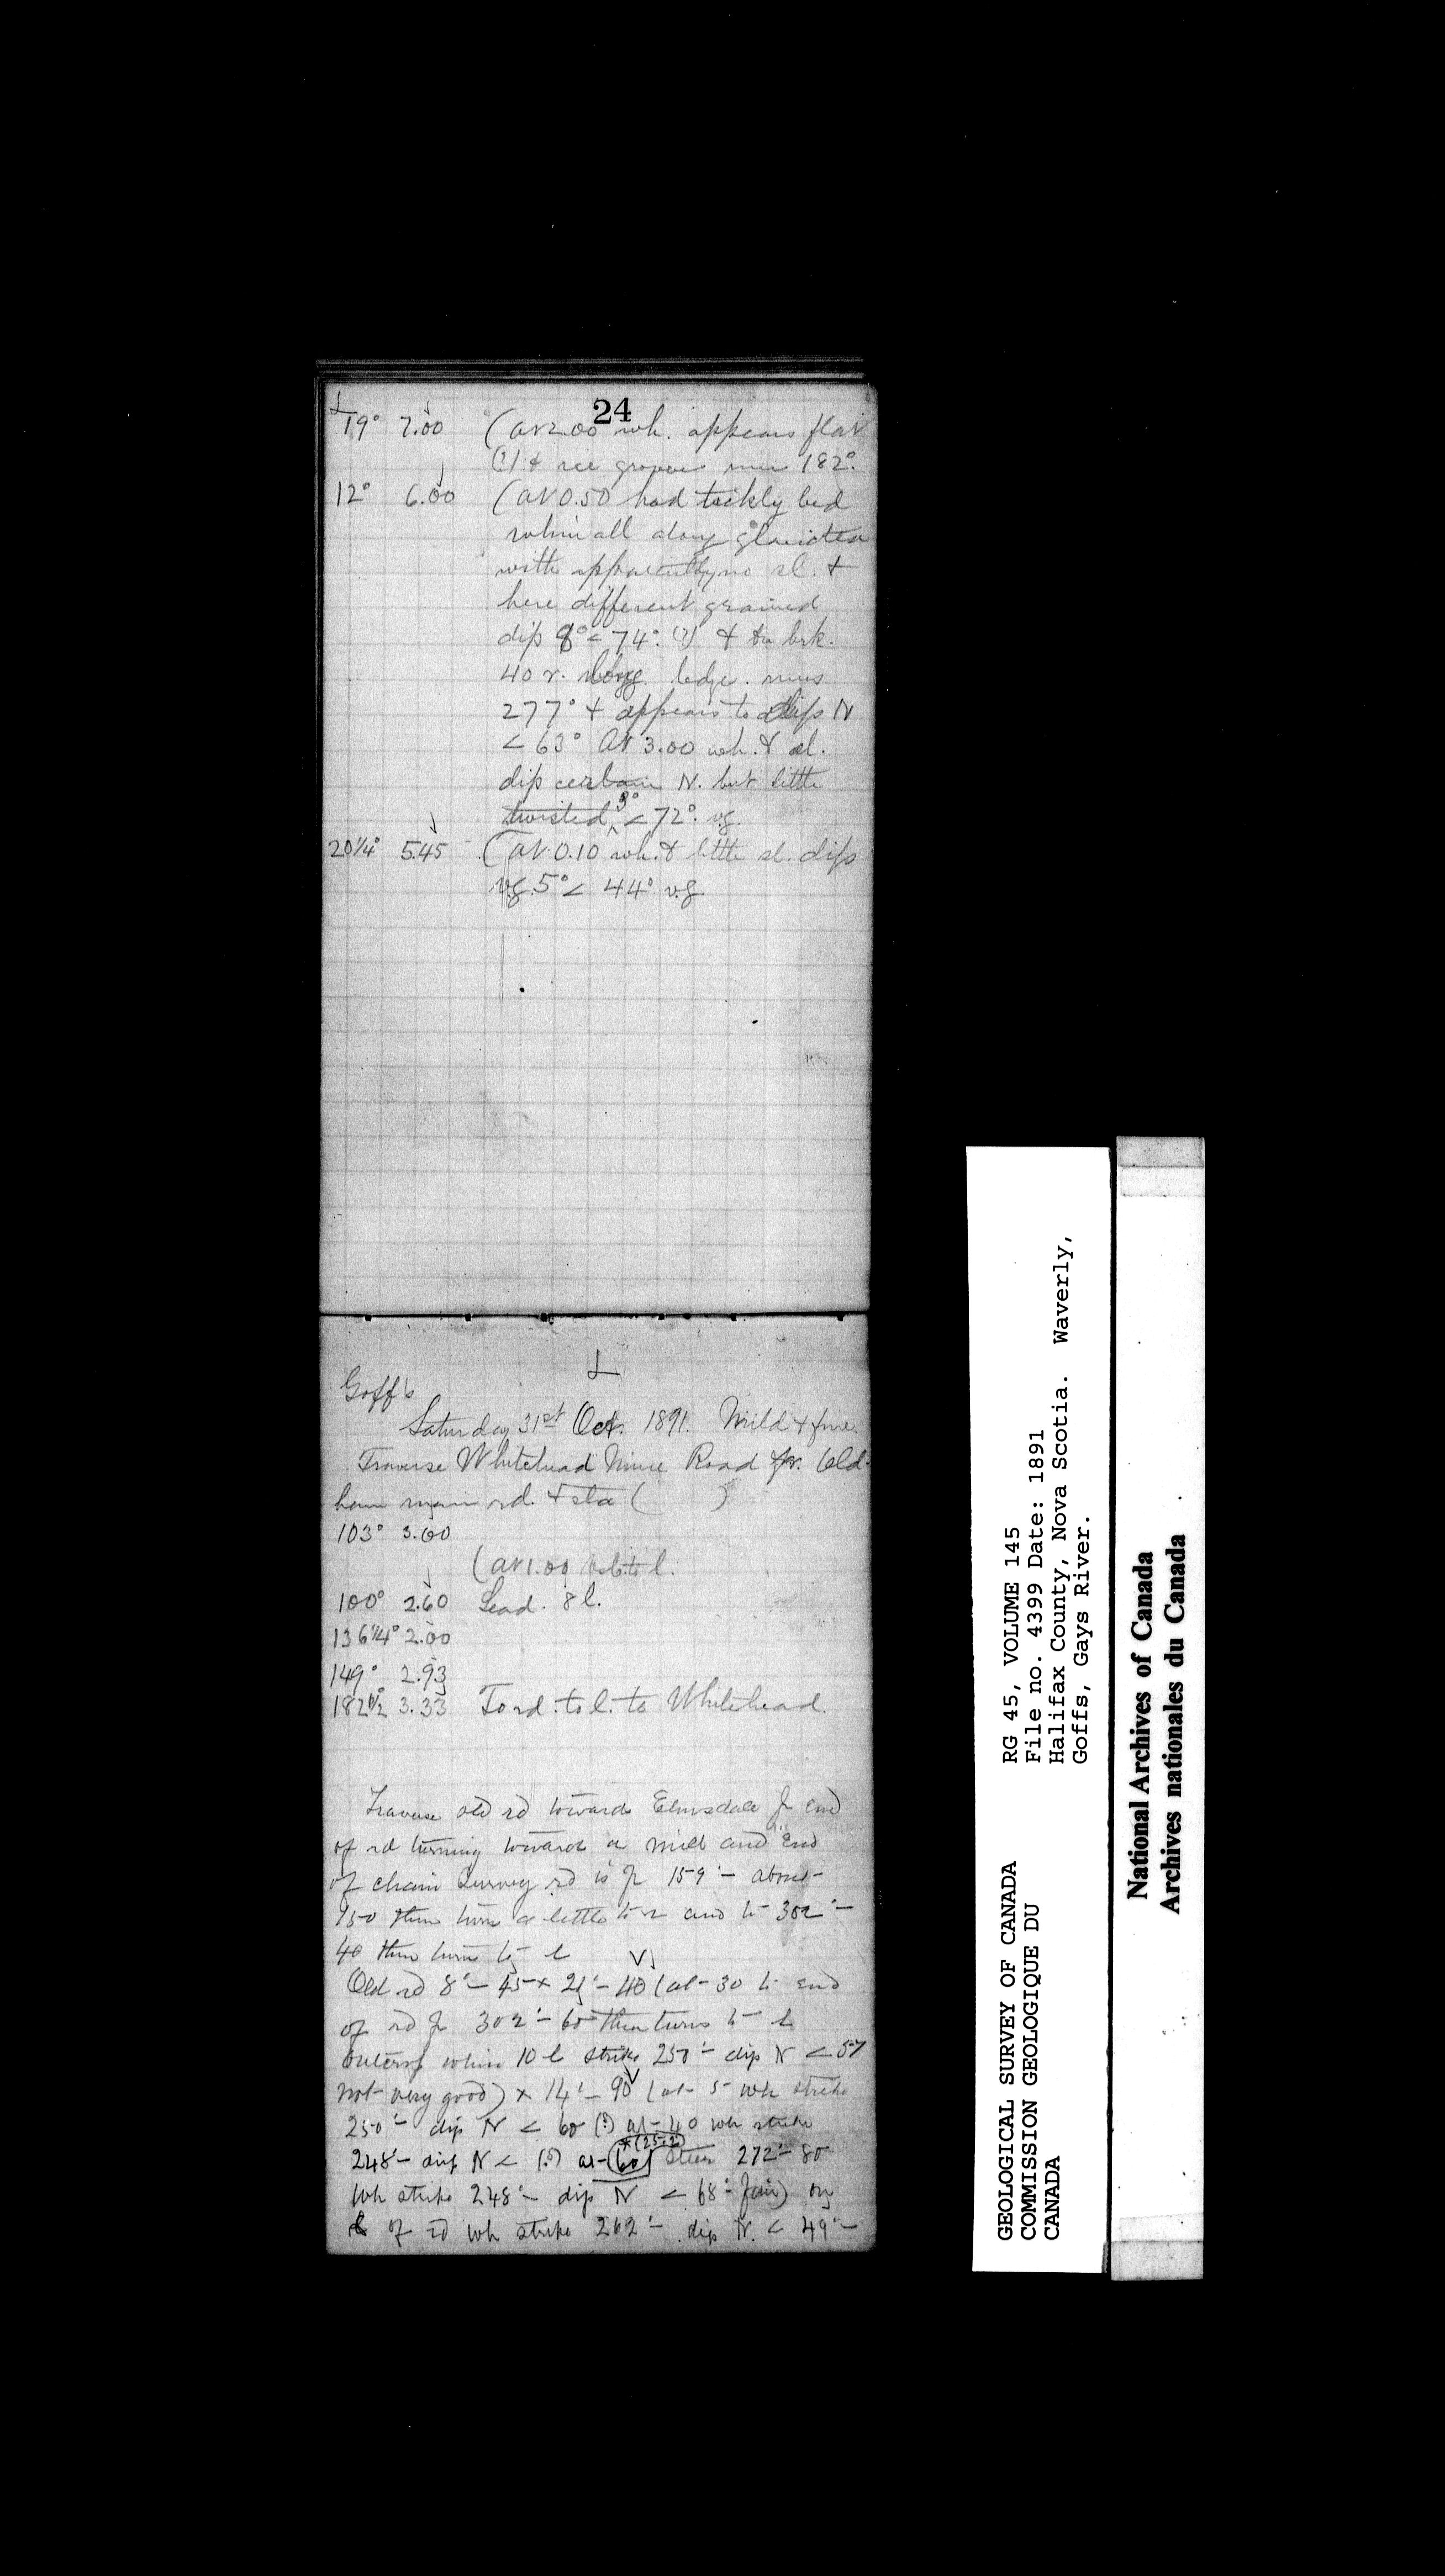 24
19° 7.00 (at 2.00 wh. appears flat
(?) & ice grooves run 182°.
12° 6.00 (at 0.50 had tickly bed
whin all along
with apparently no sl. &
here different grained
dip 8° < 74° (?) & brk.
40 r. ledge. runs
277° & appears to dip N
< 63° At 3.00 wh. & sl.
dip certain N. but little
twisted 3° < 72° v.g.
20 1/4° 5.45 (at 0.10 wh. & little sl. dips
v.g. 5° < 44° v.g.
Goff's
Saturday 31st Oct. 1891. Mild & fine.
Traverse Whitehead Mine Road fr. Old-
ham main rd. & sta ( )
103° 3.60
(at 1.00 to l.
100° 2.60 Lead. 8 l.
136 1/4° 2.00
149° 2.93
182 1/2° 3.33 To rd. to l. to Whitehead.
Traverse old rd towards Elmsdale fr end
of rd turning towards a mill and end
of chain survey rd is fr 159°- about
150 then turn a little to r and to 302°-
40 then turn to l
Old rd 8°- 45 x 21°- 40 (at- 30 to end
of rd fr 302°- 60 then turns to l
outcrop whin 10 l strike 250°- dip N < 57
not very good) x 14°- 90 (at- 5 wh strike
250°- dip N < 60 (?) at- 40 wh strike
*(25-2)
248°- dip N < (?) at- (60) steer 272°- 80
Wh strike 248°- dip N < 68°- fair) on
l of rd wh strike 262°- dip N. < 49°-
RG 45, VOLUME 145
File no. 4399 Date: 1891
Halifax County, Nova Scotia. Waverly,
Goffs, Gays River.
GEOLOGICAL SURVEY OF CANADA
COMMISSION GEOLOGIQUE DU
CANADA
National Archives of Canada
Archives nationales du Canada